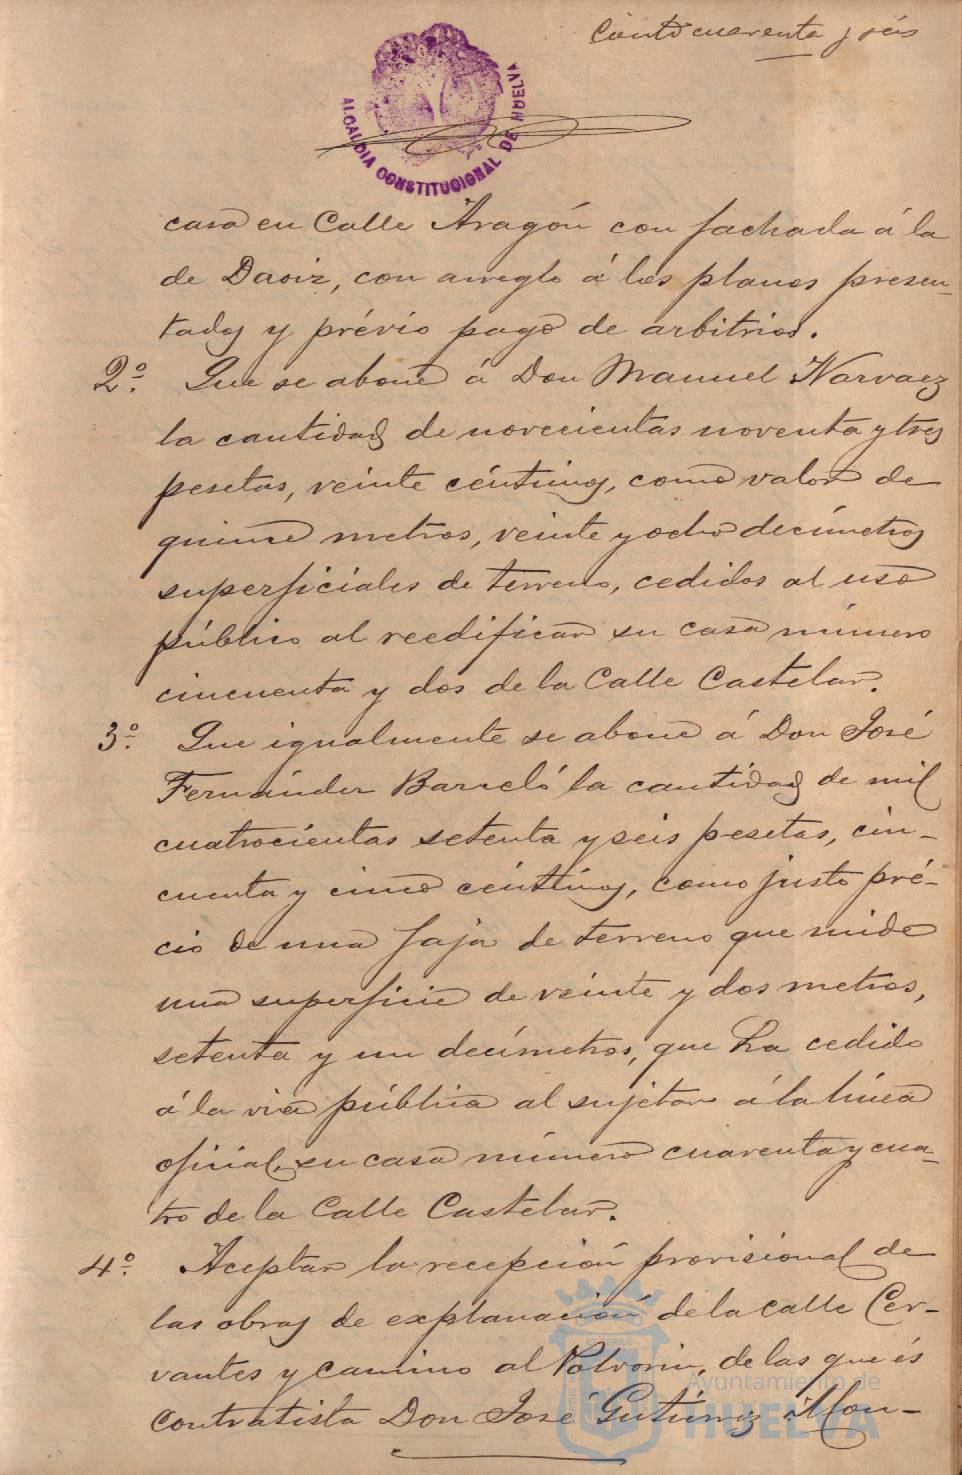 Ciento cuarenta y seis
ALCALDIA CONSTITUCIONAL DE HUELVA
casa en Calle Aragón con fachada á la
de Daoiz, con arreglo á los planos presen-
tados y prévio pago de arbitrios.
2º. Que se abone á Don Manuel Narvaez
la cantidad de novecientas noventa y tres
pesetas, veinte céntimos, como valor de
quince metros, veinte y ocho decímetros
superficiales de terreno, cedidos al uso
público al reedificar su casa número
cincuenta y dos de la Calle Castelar.
3º. Que igualmente se abone á Don José
Fernández Barceló la cantidad de mil
cuatrocientas setenta y seis pesetas, cin-
cuenta y cinco céntimos, como justo pré-
cio de una faja de terreno que mide
una superficie de veinte y dos metros,
setenta y un decímetros, que ha cedido
á la via pública al sujetar á la línea
oficial, su casa número cuarenta y cua-
tro de la Calle Castelar.
4º. Aceptar la recepción provisional de
las obras de explanación de la calle Cer-
vantes y camino al Polvorin, de las que és
contratista Don José Gutiérrez Mon-
Ayuntamiento de
HUELVA